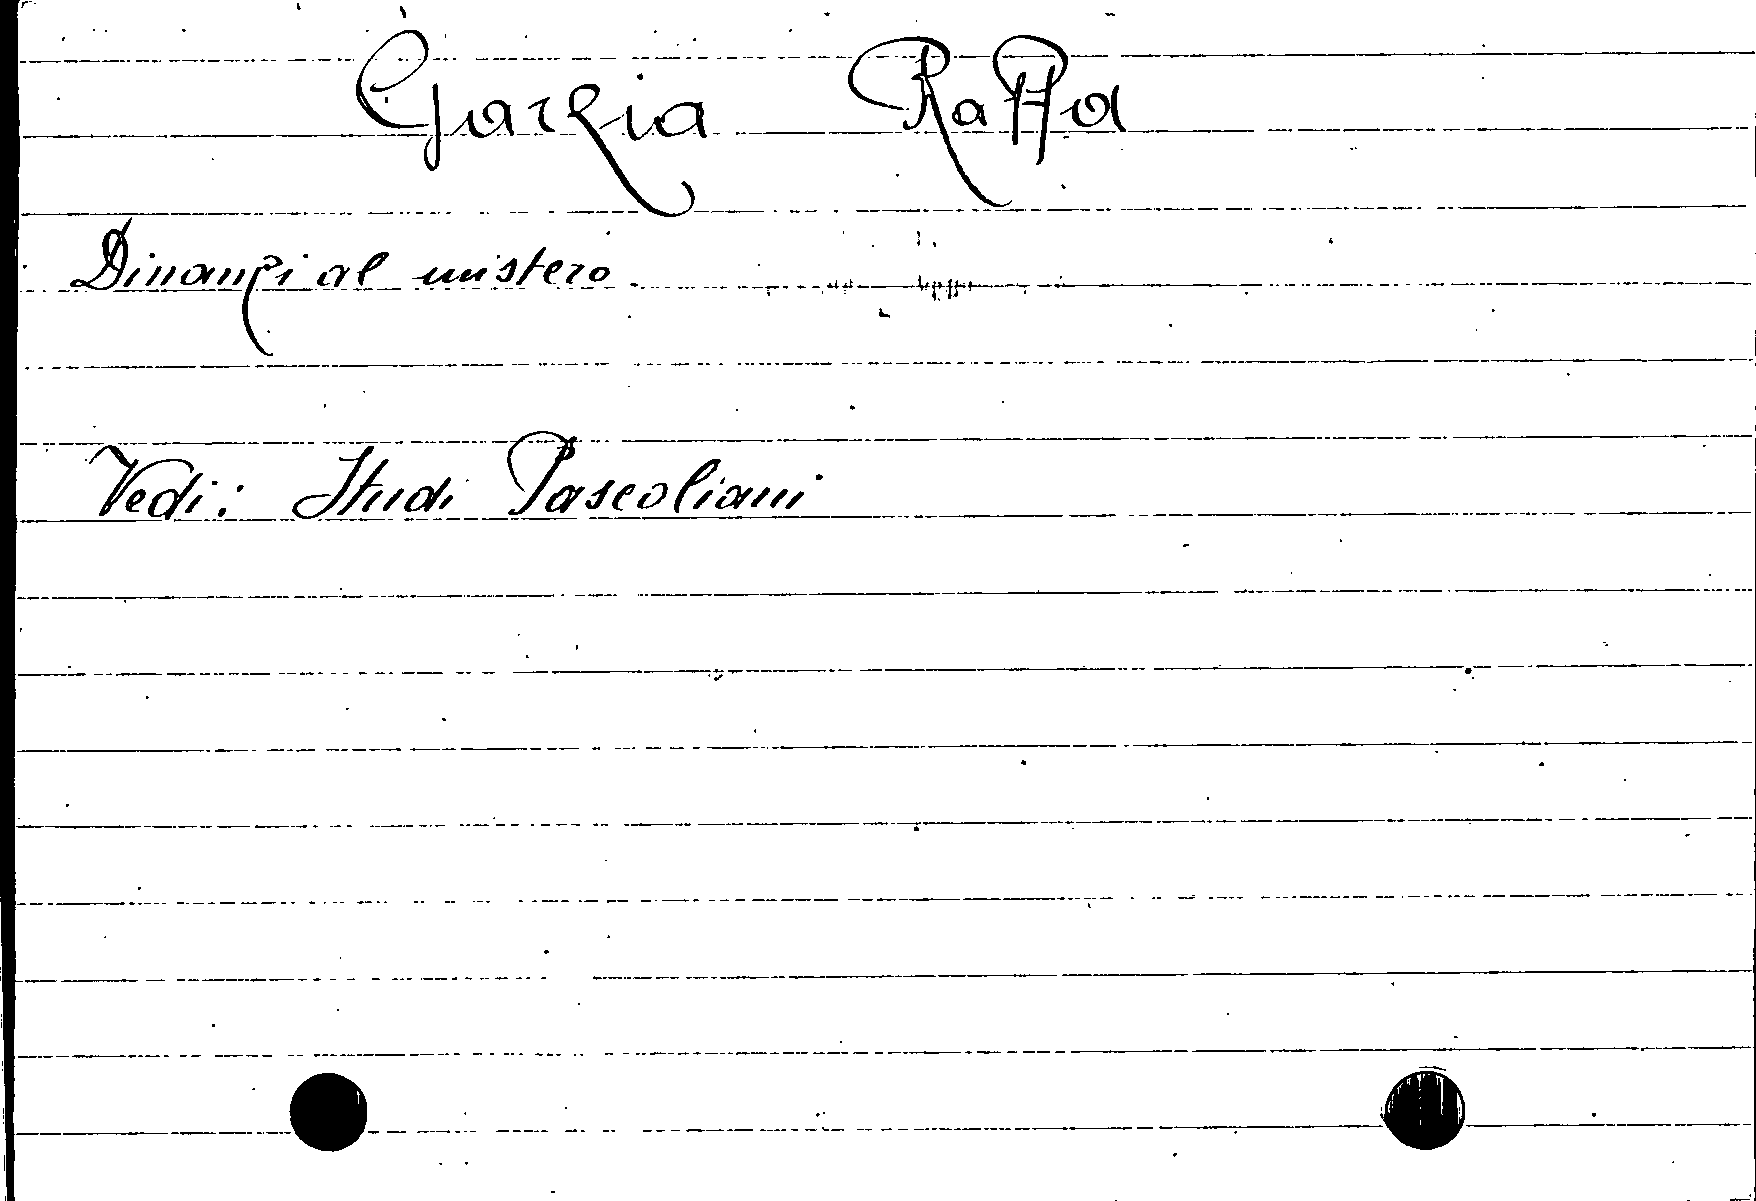 Garzia Raffa
Dinanzi al mistero
Vedi: Studi Pascoliani